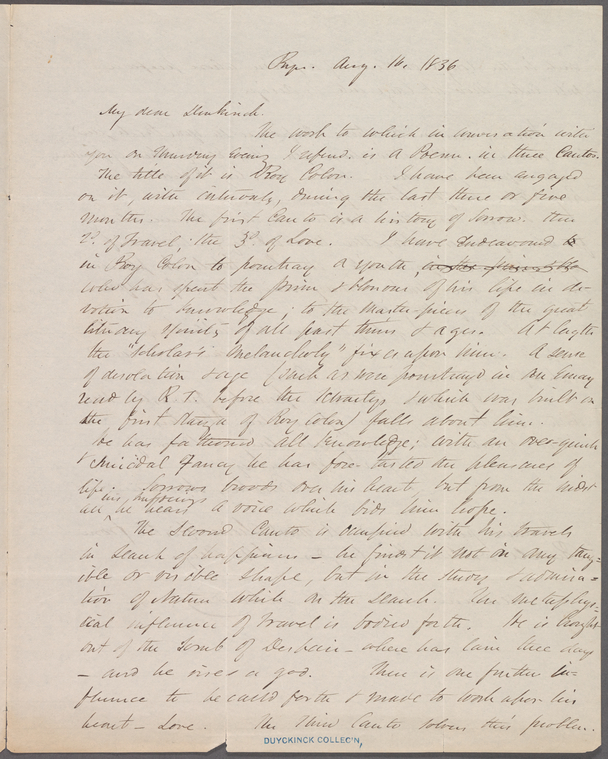 Aug. 16. 1836
My dear Duyckinck.
The work to which in conversation with
you on Thursday Evening I referd. is a Poem. in three Cantos.
The title of it is Roy Colon. I have been engaged
on it, with intervals, during the last three or five
months. The first Canto is a history of Sorrow. the
2d. of Travel; the 3d. of Love. I have Endeavoured to
in Roy Colon to pourtray a youth,
who has spent the prime & honour of his life in de-
votion to knowledge; to the master-pieces of the great
literary spirits of all past times & ages. At length
the "scholar's melancholy" fixes upon him. A sense
of desolation & age (such as were pourtrayed in an Essay
read by R. T. before the & which was built on
the first Stanza of Roy Colon) falls about him.
He has fathomed all knowledge; with an over-quick
& suicidal Fancy he has fore-tasted the pleasures of
life. Sorrow broods over his heart, but from the midst
his sufferings
all he hears a voice which bids him hope.
The Second Canto is occupied with his travels
in search of happiness – he finds it not in any tang-
ible or visible shape, but in the study & admira-
tion of Nature which on the search. The metaphys-
ical influence of Travel is bodied forth. He is brought
out of the Tomb of Despair – where has lain three days
– and he rises a god. There is one further in-
fluence to be called forth & made to work upon his
heart – Love. The third Canto solves this problem.
DUYCKINCK COLLEC'N,